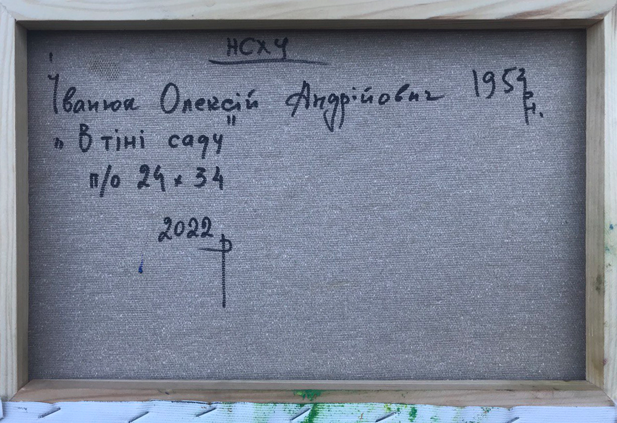 НСХУ
Іванюк Олексій Андрійович 1952 р.н.
"В тіні саду"
п/о 24 x 34
2022 р